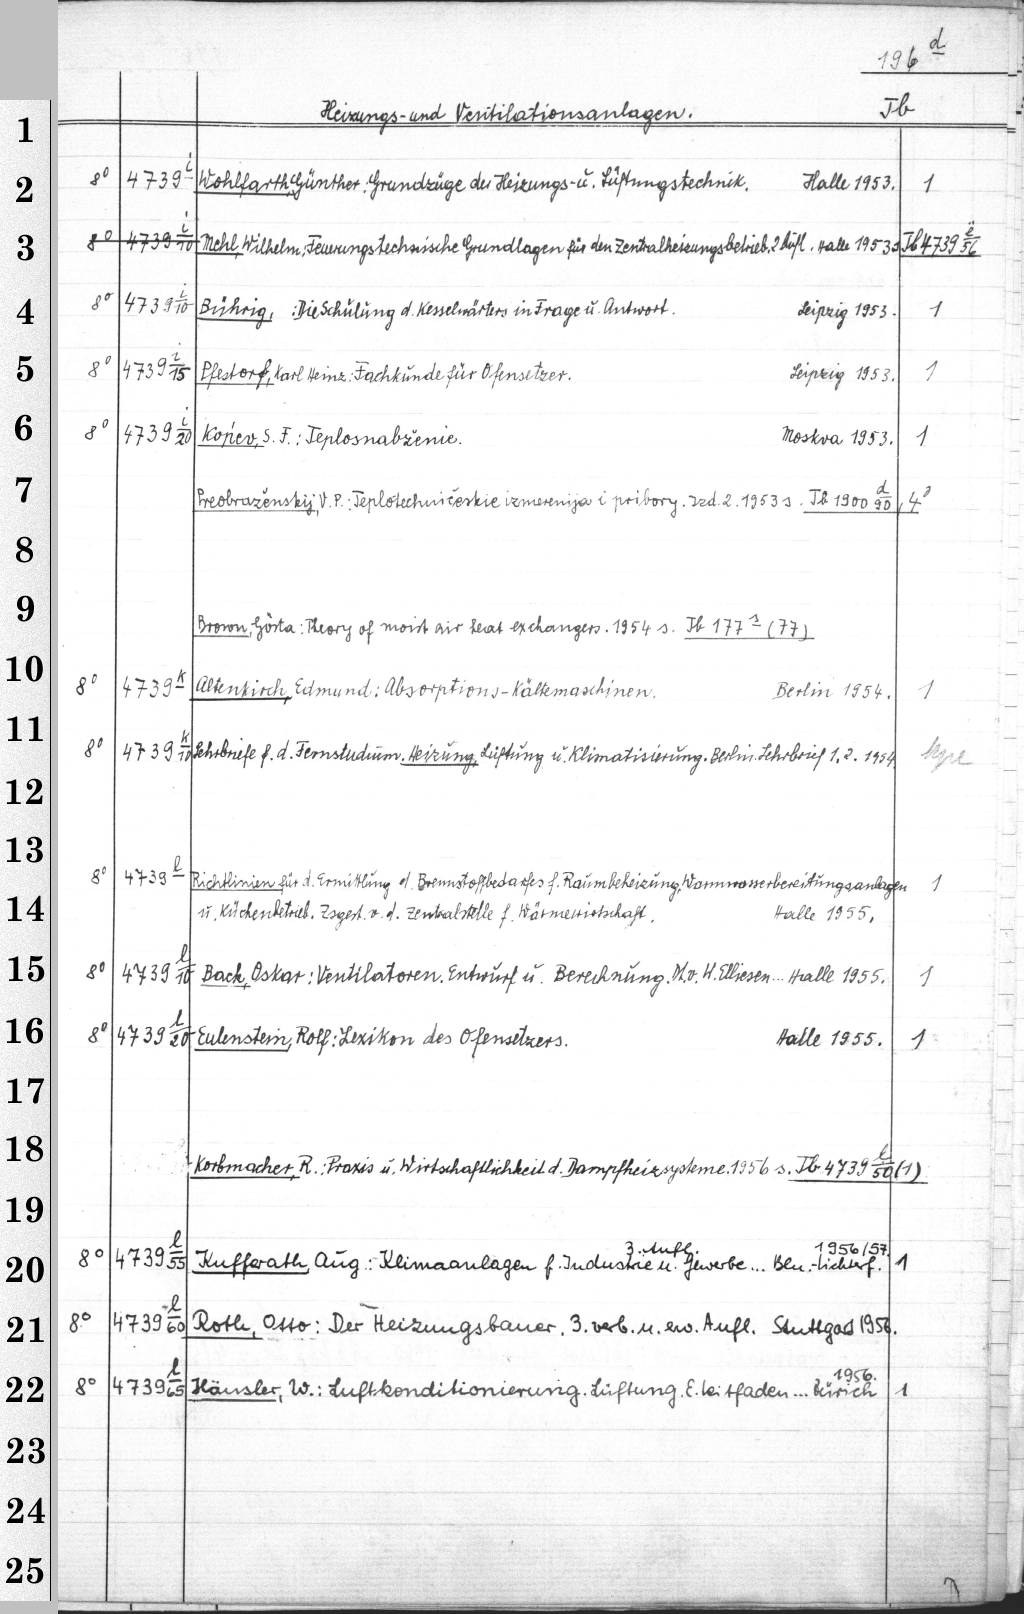 196 d
Heizungs- und Ventilationsanlagen. Tb
1
2 8° 4739 i Wohlfarth, Günther: Grundzüge der Heizungs- u. Lüftungstechnik. Halle 1953. 1
3 8° 4739 i/10 Mehl, Wilhelm: Feuerungstechnische Grundlagen für den Zentralheizungsbetrieb. 2. Aufl. Halle 1953 s Tb 4739 i/56
4 8° 4739 i/10 Bührig, : Die Schulung d. Kesselwärters in Frage u. Antwort. Leipzig 1953. 1
5 8° 4739 i/15 Pfestorf, Karl Heinz: Fachkunde für Ofensetzer. Leipzig 1953. 1
6 8° 4739 i/20 Kop'ev, S. F.: Teplosnabženie. Moskva 1953. 1
7 Preobraženskij, V. P.: Teplotechničeskie izmerenija i pribory. Izd. 2. 1953 s. Tb 1900 d/90, 4°
8
9 Brown, Gösta: Theory of moist air heat exchangers. 1954 s. Tb 177 s (77)
10 8° 4739 k Altenkirch, Edmund: Absorptions-Kältemaschinen. Berlin 1954. 1
11 8° 4739 k/10 Lehrbriefe f. d. Fernstudium. Heizung, Lüftung u. Klimatisierung. Berlin. Lehrbrief 1.2. 1954.
12
13 8° 4739 l Richtlinien für d. Ermittlung d. Brennstoffbedarfes f. Raumbeheizung, Warmwasserbereitungsanlagen 1
14 u. Küchenbetrieb. Zsgest. v. d. Zentralstelle f. Wärmewirtschaft. Halle 1955.
15 8° 4739 l/10 Back, Oskar: Ventilatoren. Entwurf u. Berechnung. M. v. H. Elliesen... Halle 1955. 1
16 8° 4739 l/20 Eulenstein, Rolf: Lexikon des Ofensetzers. Halle 1955. 1
17
18 Korbmacher, R.: Praxis u. Wirtschaftlichkeit d. Dampfheizsysteme. 1956 s. Tb 4739 l/50 (1)
19
3. Aufl. 1956/57.
20 8° 4739 l/55 Kufferath, Aug.: Klimaanlagen f. Industrie u. Gewerbe... Bln.-Lichterf. 1
21 8° 4739 l/60 Roth, Otto: Der Heizungsbauer. 3. verb. u. erw. Aufl. Stuttgart 1956.
1956.
22 8° 4739 l/65 Häusler, W.: Luftkonditionierung. Lüftung. E. Leitfaden... Zürich 1
23
24
25